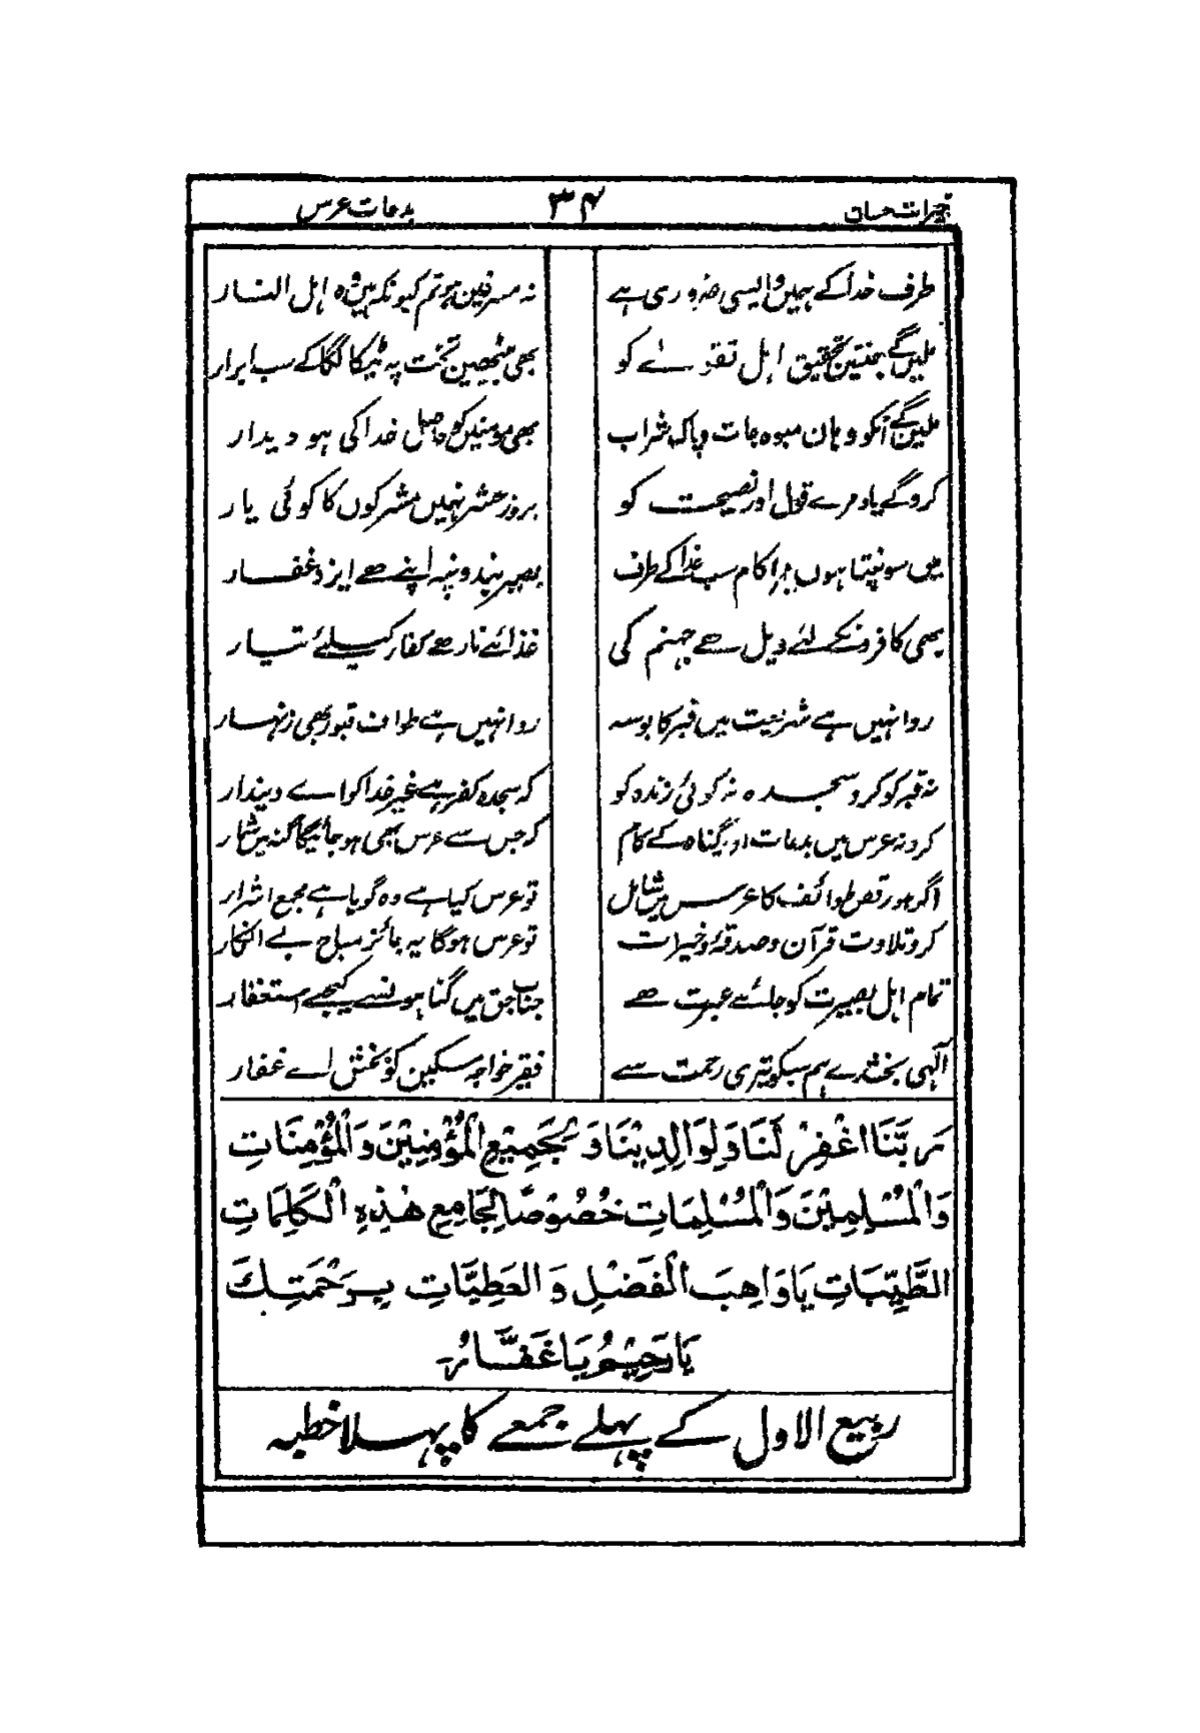 خیرات حسان ۳۴ بدعات عرس
طرف خدا کے ہمیں واپسی ضروری ہے نہ مسرفین ہو تم کیونکہ ہیں وہ اہل النار
ملیں گے جنتیں تحقیق اہل تقوے کو بھی بیٹھیں تخت پہ ٹیکا لگا کے سب ابرار
ملیں گے انکو وہان میوہ جات و پاک شراب بھی مومنیں کو حاصل خدا کی ہو دیدار
کروگے یاد مرے قول اور نصیحت کو بروز حشر نہیں مشرکوں کا کوئی یار
میں سونپتا ہوں مرا کام سب خدا کے طرف بصیر بندونپہ اپنے ھے ایزد غفار
بھی کافرونکے لئے ویل ھے جہنم کی غذائے نار ھے کفار کیلئے تیار
روا نہیں ہے شریعت میں قبر کا بوسہ روا نہیں ہے طواف قبور بھی زنہار
نہ قبر کو کرو سجدہ نہ کوئی زندہ کو کہ سجدہ کفر ہے غیر خدا کو اے دیندار
کرو نہ عرس میں بدعات اور گناہ کے کام کہ جس سے عرس بھی ہو جائیگا گنہ میں شمار
اگر ہو رقص طوائف کا عرس میں شامل تو عرس کیا ہے وہ گویا ہے مجمع اشرار
کرو تلاوت قرآن و صدقۂ و خیرات تو عرس ہوگا یہ جائز مباح بے انکار
تمام اہل بصیرت کو جائے عبرت ھے جناب حق میں گناہونسے کیجے استغفار
الٰہی بخشدے ہم سبکو تیری رحمت سے فقیر خواجہ مسکین کو بخش اے غفار
رَبَّنَا اغْفِرْ لَنَا وَلِوَالِدِیْنَا وَلِجَمِیْعِ الْمُؤْمِنِیْنَ وَالْمُؤْمِنَاتِ
وَالْمُسْلِمِیْنَ وَالْمُسْلِمَاتِ خُصُوْصًا لِجَامِعِ هٰذِهِ الْکَلِمَاتِ
الطَّیِّبَاتِ یَا وَاهِبَ الْفَضْلِ وَالْعَطِیَّاتِ بِرَحْمَتِكَ
یَا رَحِیْمُ یَا غَفَّارُ
ربیع الاول کے پہلے جمعے کا پہلا خطبہ